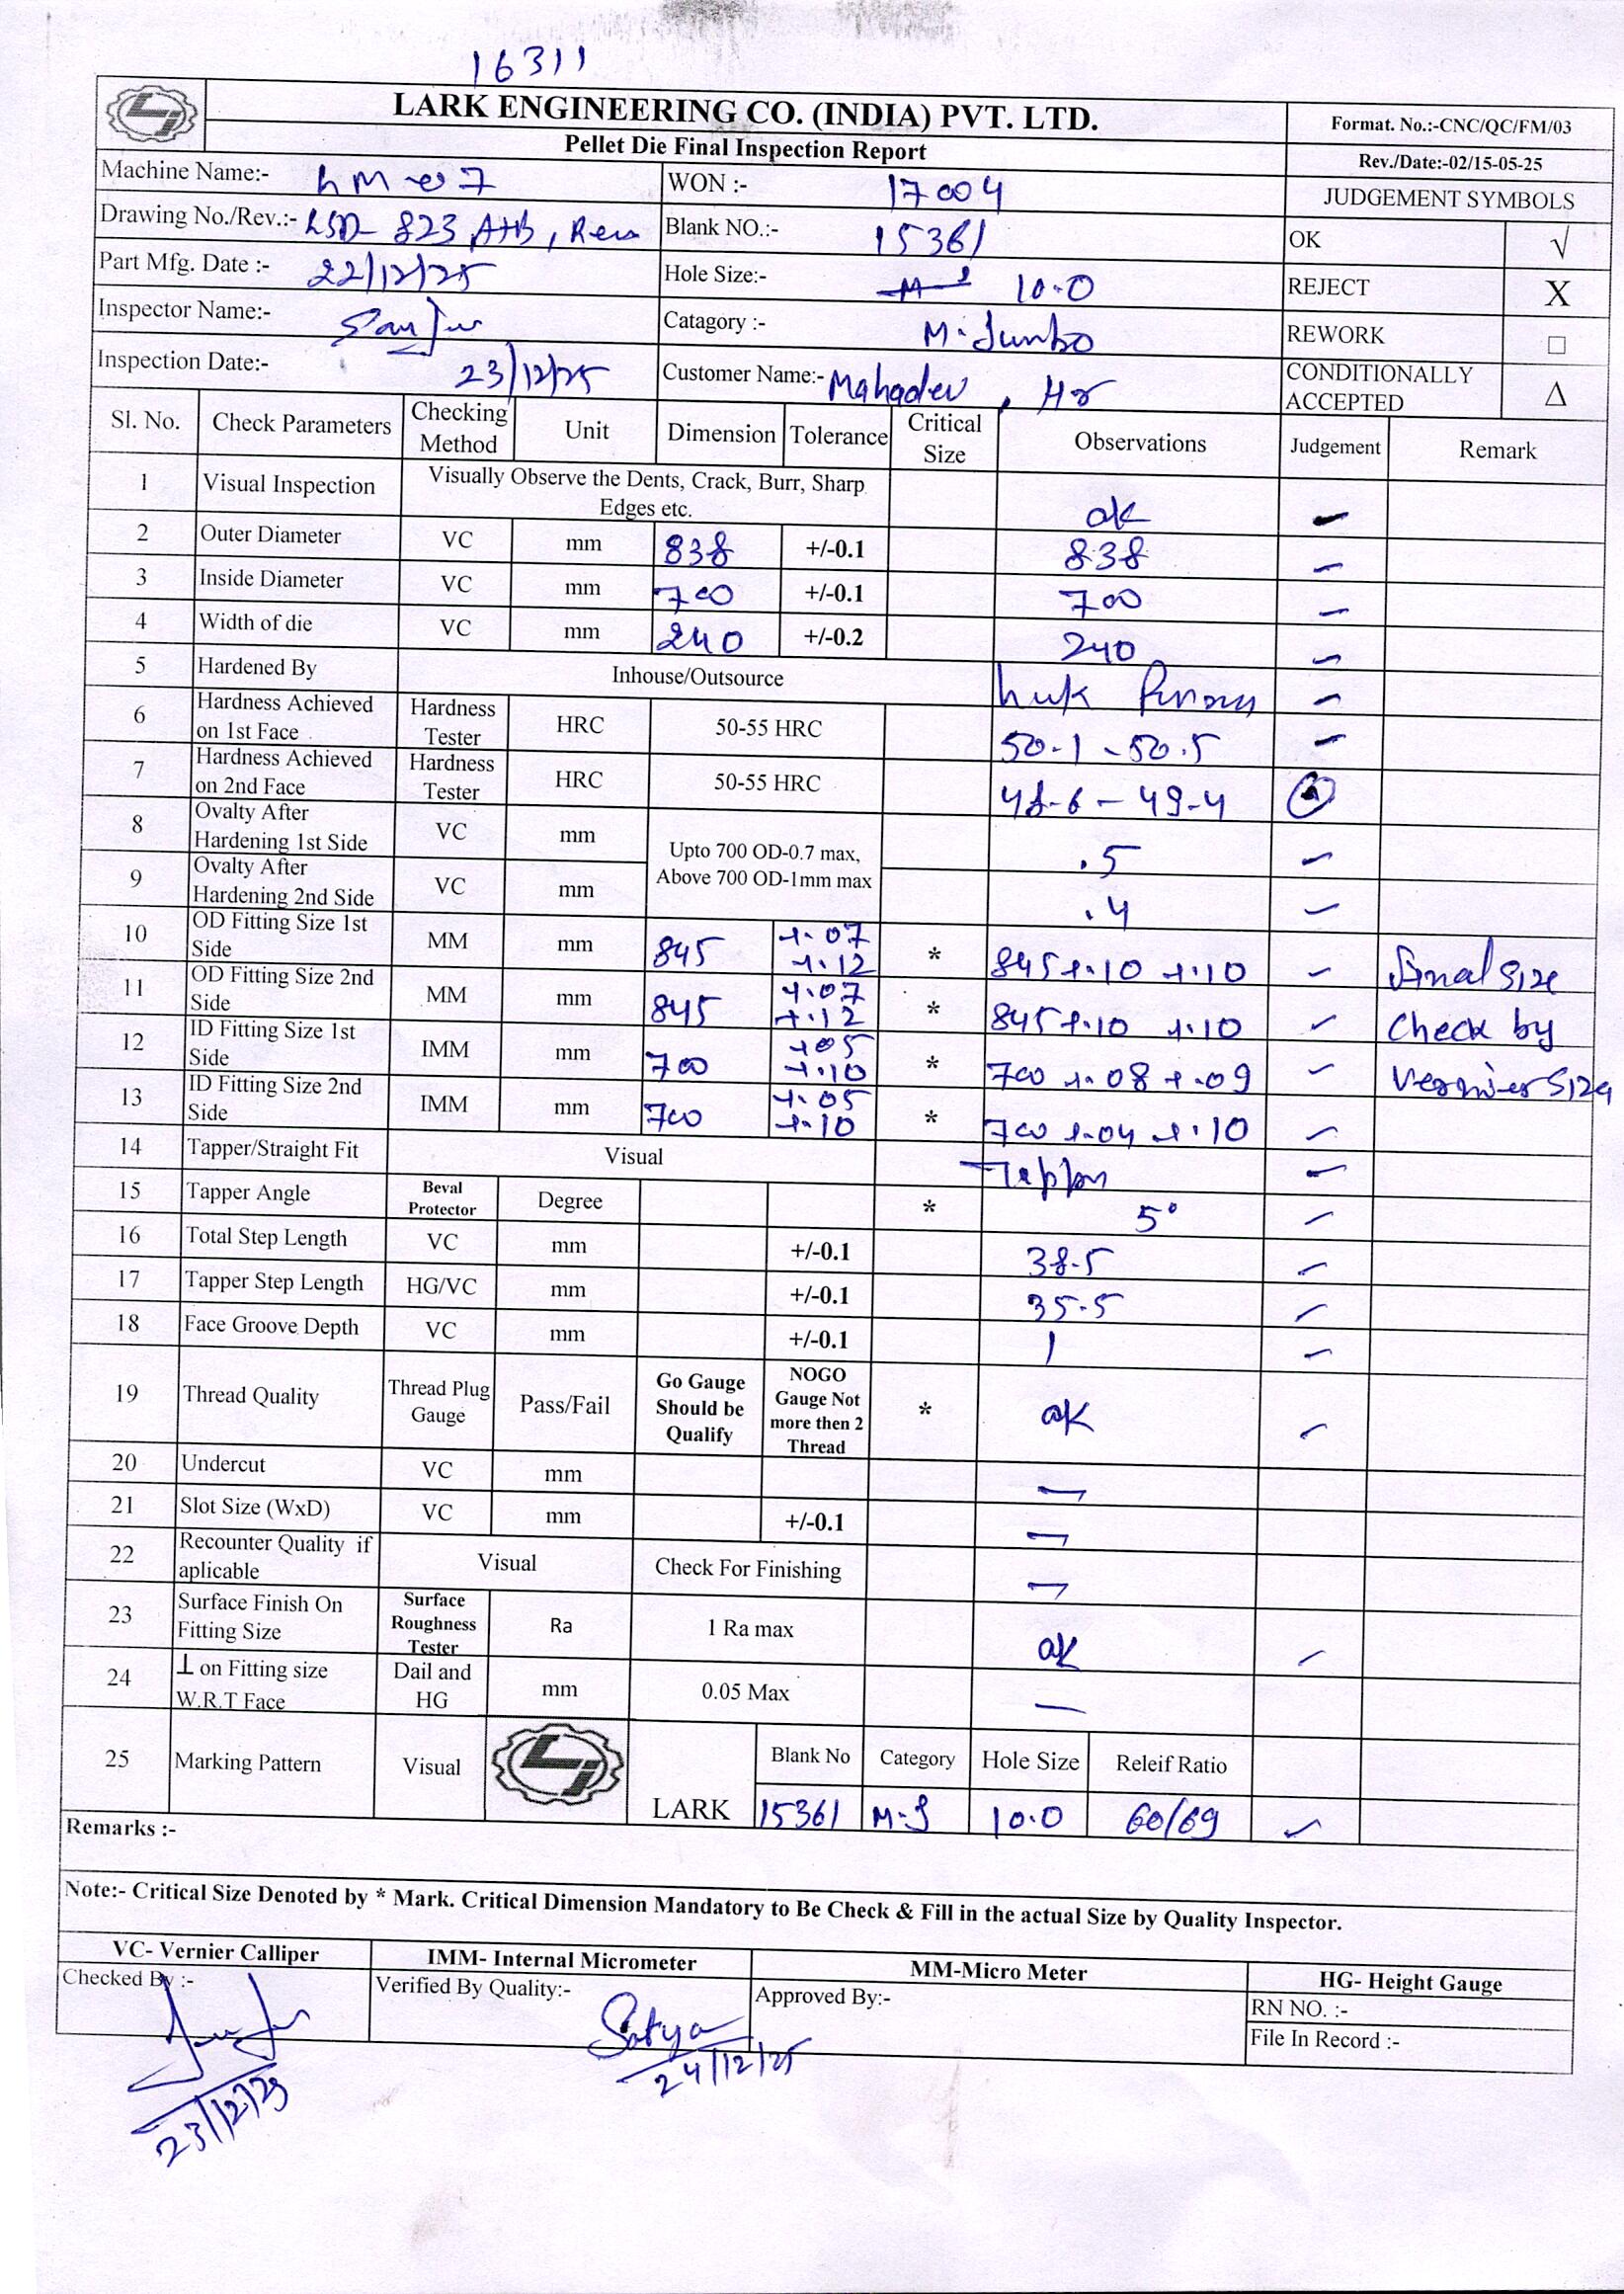 16311
LARK ENGINEERING CO. (INDIA) PVT. LTD.
Pellet Die Final Inspection Report
Format. No.:-CNC/QC/FM/03
Rev./Date:-02/15-05-25
Machine Name:-
WON :- 17004
JUDGEMENT SYMBOLS
Drawing No./Rev.:- LSD- 823 A+B,
Blank NO.:- 15361
OK √
Part Mfg. Date :- 22/12/25
Hole Size:- 10.0
REJECT X
Inspector Name:-
Catagory :- M-Jumbo
REWORK □
Inspection Date:- 23/12/25
Customer Name:- Mahadev, Hr
CONDITIONALLY ACCEPTED Δ
Sl. No. Check Parameters Checking Method Unit Dimension Tolerance Critical Size Observations Judgement Remark
1 Visual Inspection Visually Observe the Dents, Crack, Burr, Sharp Edges etc. ok
2 Outer Diameter VC mm 838 +/-0.1 838
3 Inside Diameter VC mm 700 +/-0.1 700
4 Width of die VC mm 240 +/-0.2 240
5 Hardened By Inhouse/Outsource
6 Hardness Achieved on 1st Face Hardness Tester HRC 50-55 HRC 50.1 - 50.5
7 Hardness Achieved on 2nd Face Hardness Tester HRC 50-55 HRC 48.6 - 49.4
8 Ovalty After Hardening 1st Side VC mm Upto 700 OD-0.7 max, Above 700 OD-1mm max .5
9 Ovalty After Hardening 2nd Side VC mm .4
10 OD Fitting Size 1st Side MM mm 845 +.07 +.12 * 845 +.10 +.10 Final Size
11 OD Fitting Size 2nd Side MM mm 845 +.07 +.12 * 845 +.10 +.10 Check by
12 ID Fitting Size 1st Side IMM mm 700 +.05 +.10 * 700 +.08 +.09 Vernier Size
13 ID Fitting Size 2nd Side IMM mm 700 +.05 +.10 * 700 +.04 +.10
14 Tapper/Straight Fit Visual Tapper
15 Tapper Angle Beval Protector Degree * 5°
16 Total Step Length VC mm +/-0.1 38.5
17 Tapper Step Length HG/VC mm +/-0.1 35.5
18 Face Groove Depth VC mm +/-0.1 1
19 Thread Quality Thread Plug Gauge Pass/Fail Go Gauge Should be Qualify NOGO Gauge Not more then 2 Thread * ok
20 Undercut VC mm —
21 Slot Size (WxD) VC mm +/-0.1 —
22 Recounter Quality if aplicable Visual Check For Finishing —
23 Surface Finish On Fitting Size Surface Roughness Tester Ra 1 Ra max ok
24 ⊥ on Fitting size W.R.T Face Dail and HG mm 0.05 Max —
25 Marking Pattern Visual LARK Blank No Category Hole Size Releif Ratio
15361 M-J 10.0 60/69
Remarks :-
Note:- Critical Size Denoted by * Mark. Critical Dimension Mandatory to Be Check & Fill in the actual Size by Quality Inspector.
VC- Vernier Calliper IMM- Internal Micrometer MM-Micro Meter HG- Height Gauge
Checked By :- Verified By Quality:- Satya Approved By:- RN NO. :-
File In Record :-
24/12/25
23/12/25